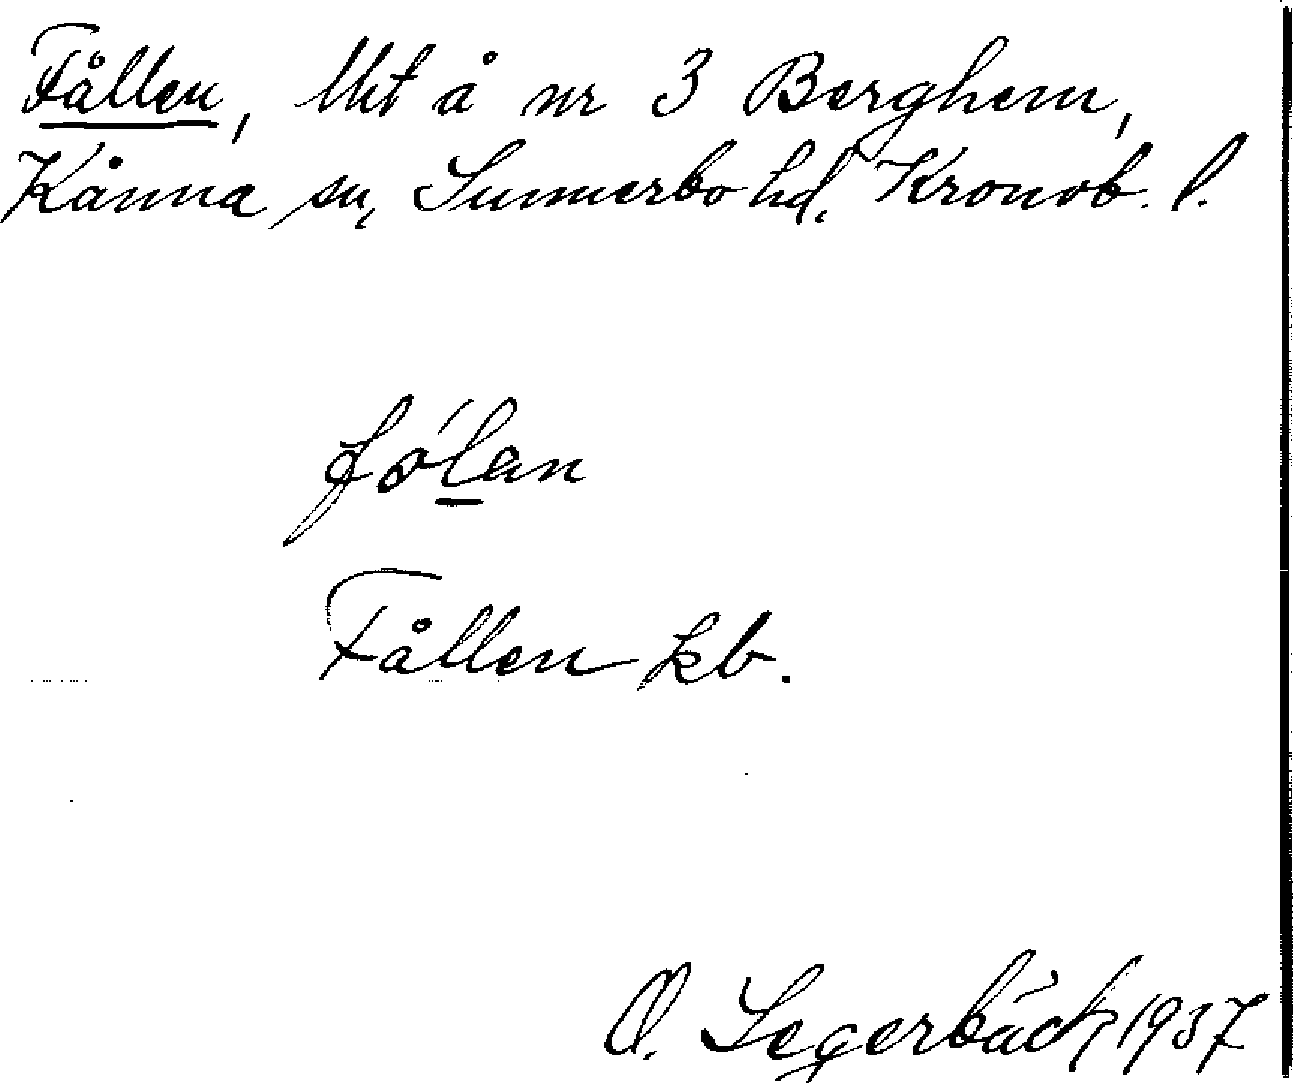 Fållen, Uht å nr 3 Berghem,
Kånna sn, Sunnerbo hd, Kronob. l.
fó̀lan
Fållen kb.
O. Segerbäck 1937